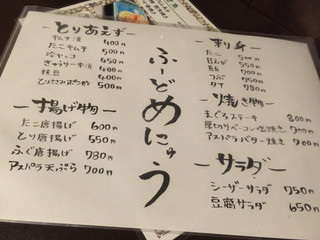 ふーどめにゅう
ーとりあえずー
キムチ 400円
たこキムチ 500円
冷ヤッコ 400円
きゅうり一本漬 450円
枝豆 400円
とりささみポン酢 500円
ー揚げ物ー
たこ唐揚げ 600円
とり唐揚げ 550円
ふぐ唐揚げ 780円
アスパラ天ぷら 700円
ー刺身ー
たこ 500円
甘えび
真鯛
つぶ
タイ 780円
ー焼き物ー
まぐろステーキ 800円
厚切りベーコン塩焼き 700円
アスパラバター焼き 700円
ーサラダー
シーザーサラダ 750円
豆腐サラダ 650円